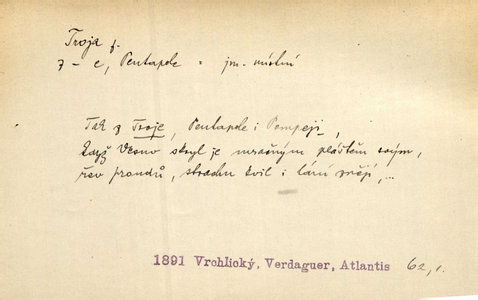 Troja f.
z – e, Pentapole = jm. místní
Tak z Troje, Pentapole i Pompeji,
když Vesuv skryl je mračným pláštěm svým,
řev proudů, strachu kvil i lání znějí,...
1891 Vrchlický, Verdaguer, Atlantis 62,1.